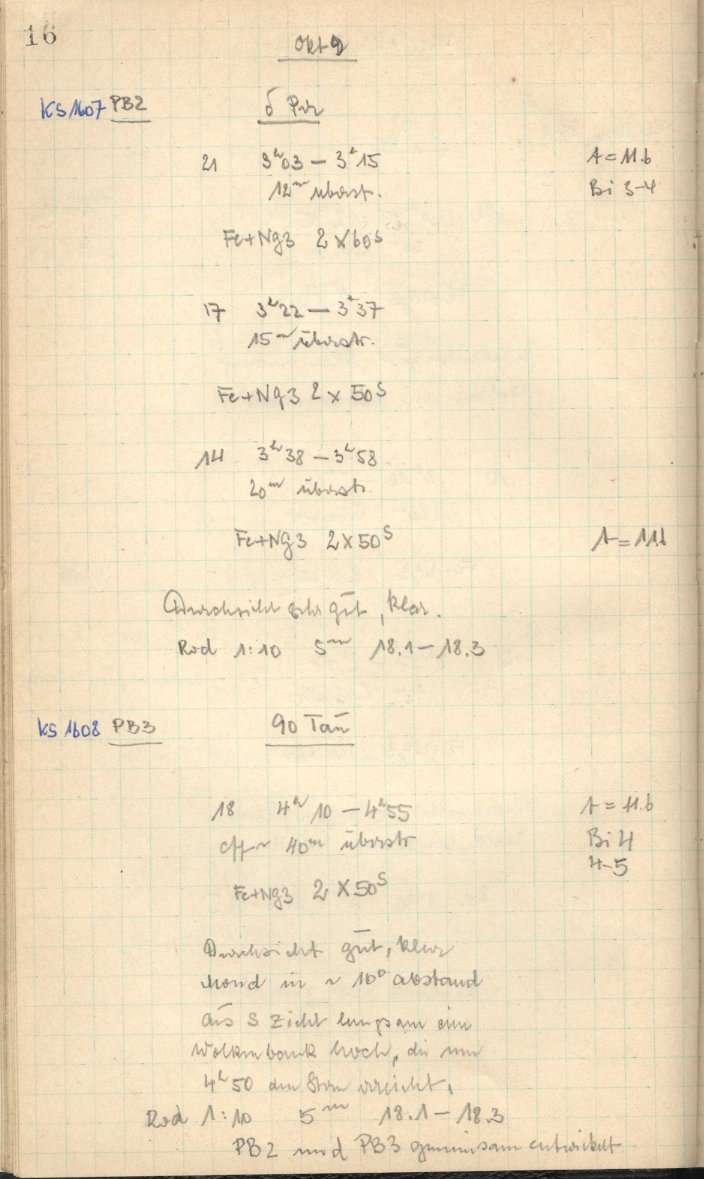 16
Okt 9
KS 1607 PB2 δ Per
21 3ʰ03 – 3ʰ15 A = 11.6
12ᵐ überst. Bi 3-4
Fe+Ng3 2 x 60ˢ
17 3ʰ22 – 3ʰ37
15ᵐ überstr.
Fe+Ng3 2 x 50ˢ
14 3ʰ38 – 3ʰ58
20ᵐ überstr.
Fe+Ng3 2 x 50ˢ A = 11.6
Durchsicht sehr gut, klar.
Rod 1:10 5ᵐ 18.1 – 18.3
KS 1608 PB3 90 Tau
18 4ʰ10 – 4ʰ55 A = 11.6
eff ~ 40ᵐ überstr Bi 4
4-5
Fe+Ng3 2 x 50ˢ
Durchsicht gut, klar
Mond in ~ 10° abstand
aus S zieht langsam eine
Wolkenbank hoch, die um
4ʰ50 den Stern erreicht.
Rod 1:10 5ᵐ 18.1 – 18.3
PB2 und PB3 gemeinsam entwickelt